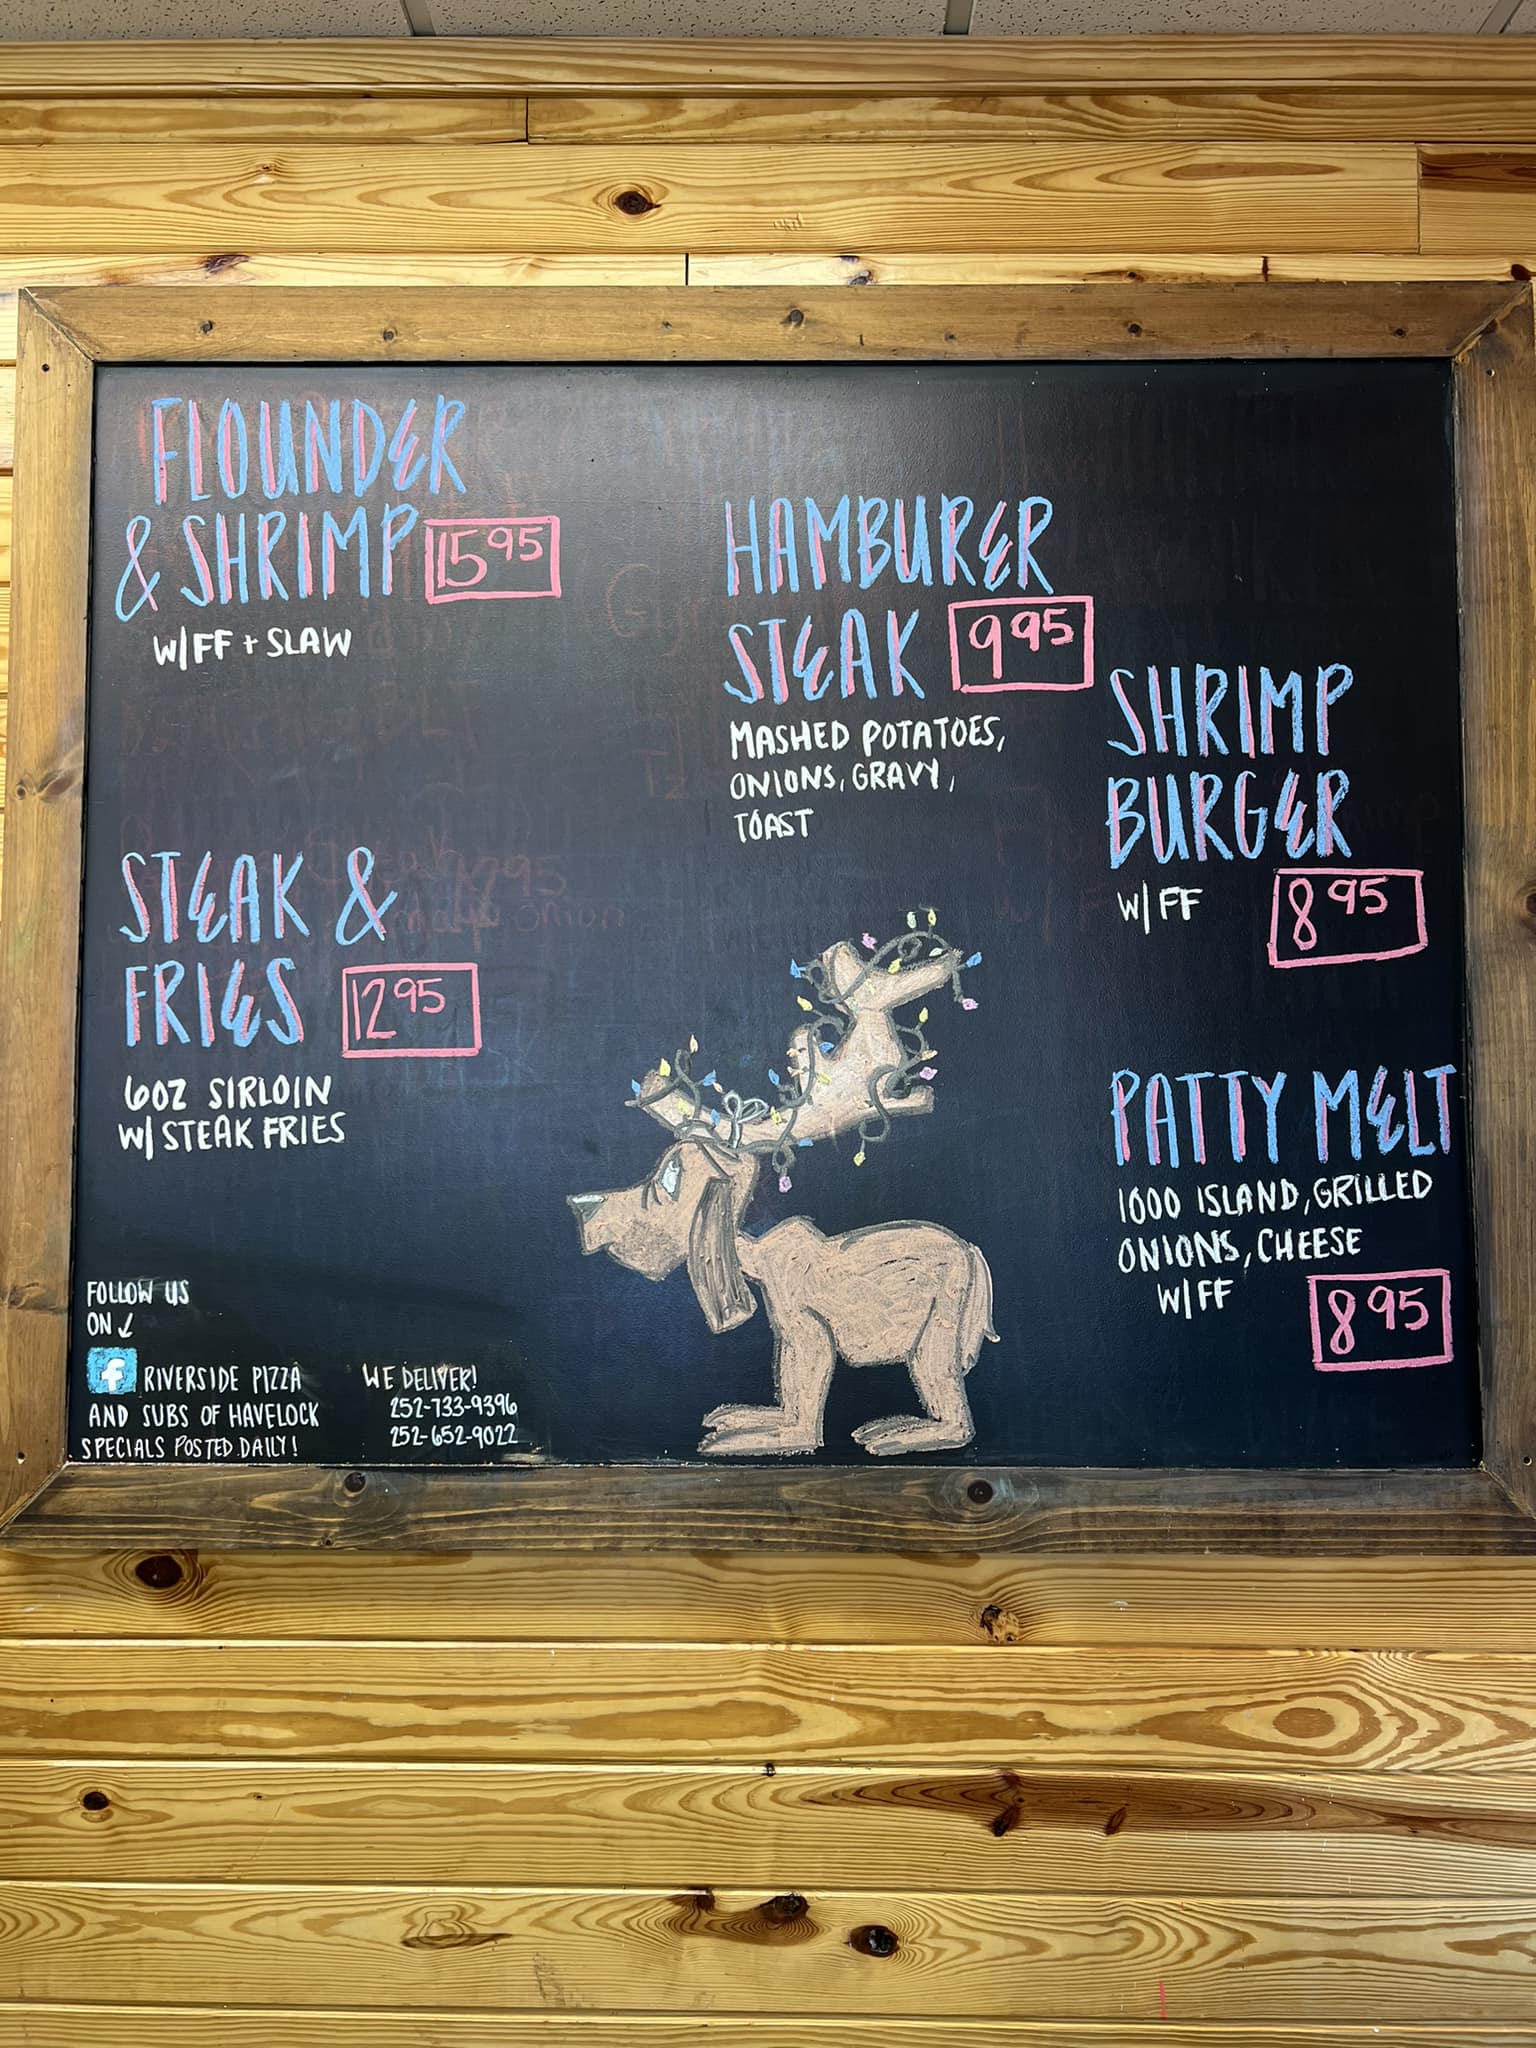 FLOUNDER
& SHRIMP 15.95
W/FF + SLAW
STEAK &
FRIES 12.95
6OZ SIRLOIN
W/ STEAK FRIES
HAMBURER
STEAK 9.95
MASHED POTATOES,
ONIONS, GRAVY,
TOAST
SHRIMP
BURGER
W/FF 8.95
PATTY MELT
1000 ISLAND, GRILLED
ONIONS, CHEESE
W/FF
8.95
FOLLOW US
ON
f RIVERSIDE PIZZA
AND SUBS OF HAVELOCK
SPECIALS POSTED DAILY!
WE DELIVER!
252-733-9396
252-652-9022